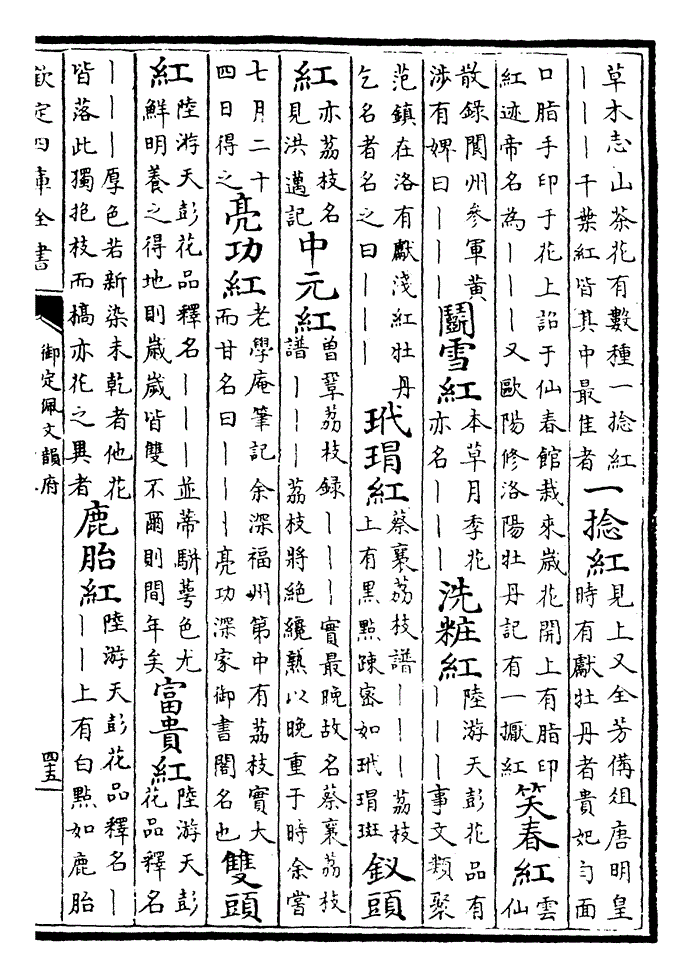 草木志山茶花有數種一捻紅
丨丨丨千葉紅皆其中最佳者
一捻紅
見上又全芳備俎唐明皇
時有獻牡丹者貴妃勻面
口脂手印于花上詔于仙春館栽來歲花開上有脂印
紅迹帝名為丨丨丨又歐陽修洛陽牡丹記有一擫紅
笑春紅
雲
仙
散錄閬州參軍黃
涉有婢曰丨丨丨
鬭雪紅
本草月季花
亦名丨丨丨
洗粧紅
陸游天彭花品有
丨丨丨事文類聚
范鎮在洛有獻淺紅牡丹
乞名者名之曰丨丨丨
玳瑁紅
蔡襄荔枝譜丨丨丨荔枝
上有黑點踈密如玳瑁斑
釵頭
紅
亦荔枝名
見洪邁記
中元紅
曾鞏荔枝録丨丨丨實最晚故名蔡襄荔枝
譜丨丨丨荔枝將絕纔熟以晚重于時余嘗
七月二十
四日得之
亮功紅
老學庵筆記余深福州第中有荔枝實大
而甘名曰丨丨丨亮功深家御書閣名也
雙頭
紅
陸游天彭花品釋名丨丨丨並蒂駢萼色尤
鮮明養之得地則歲歲皆雙不爾則間年矣
富貴紅
陸游天彭
花品釋名
丨丨丨厚色若新染未乾者他花
皆落此獨抱枝而槁亦花之異者
鹿胎紅
陸游天彭花品釋名丨
丨丨上有白點如鹿胎
欽定四庫全書
御定佩文韻府
四十五